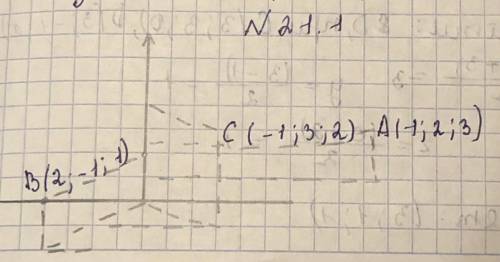 N 21.1
C (-1; 3; 2) A(-1; 2; 3)
B(2; -1; 1)